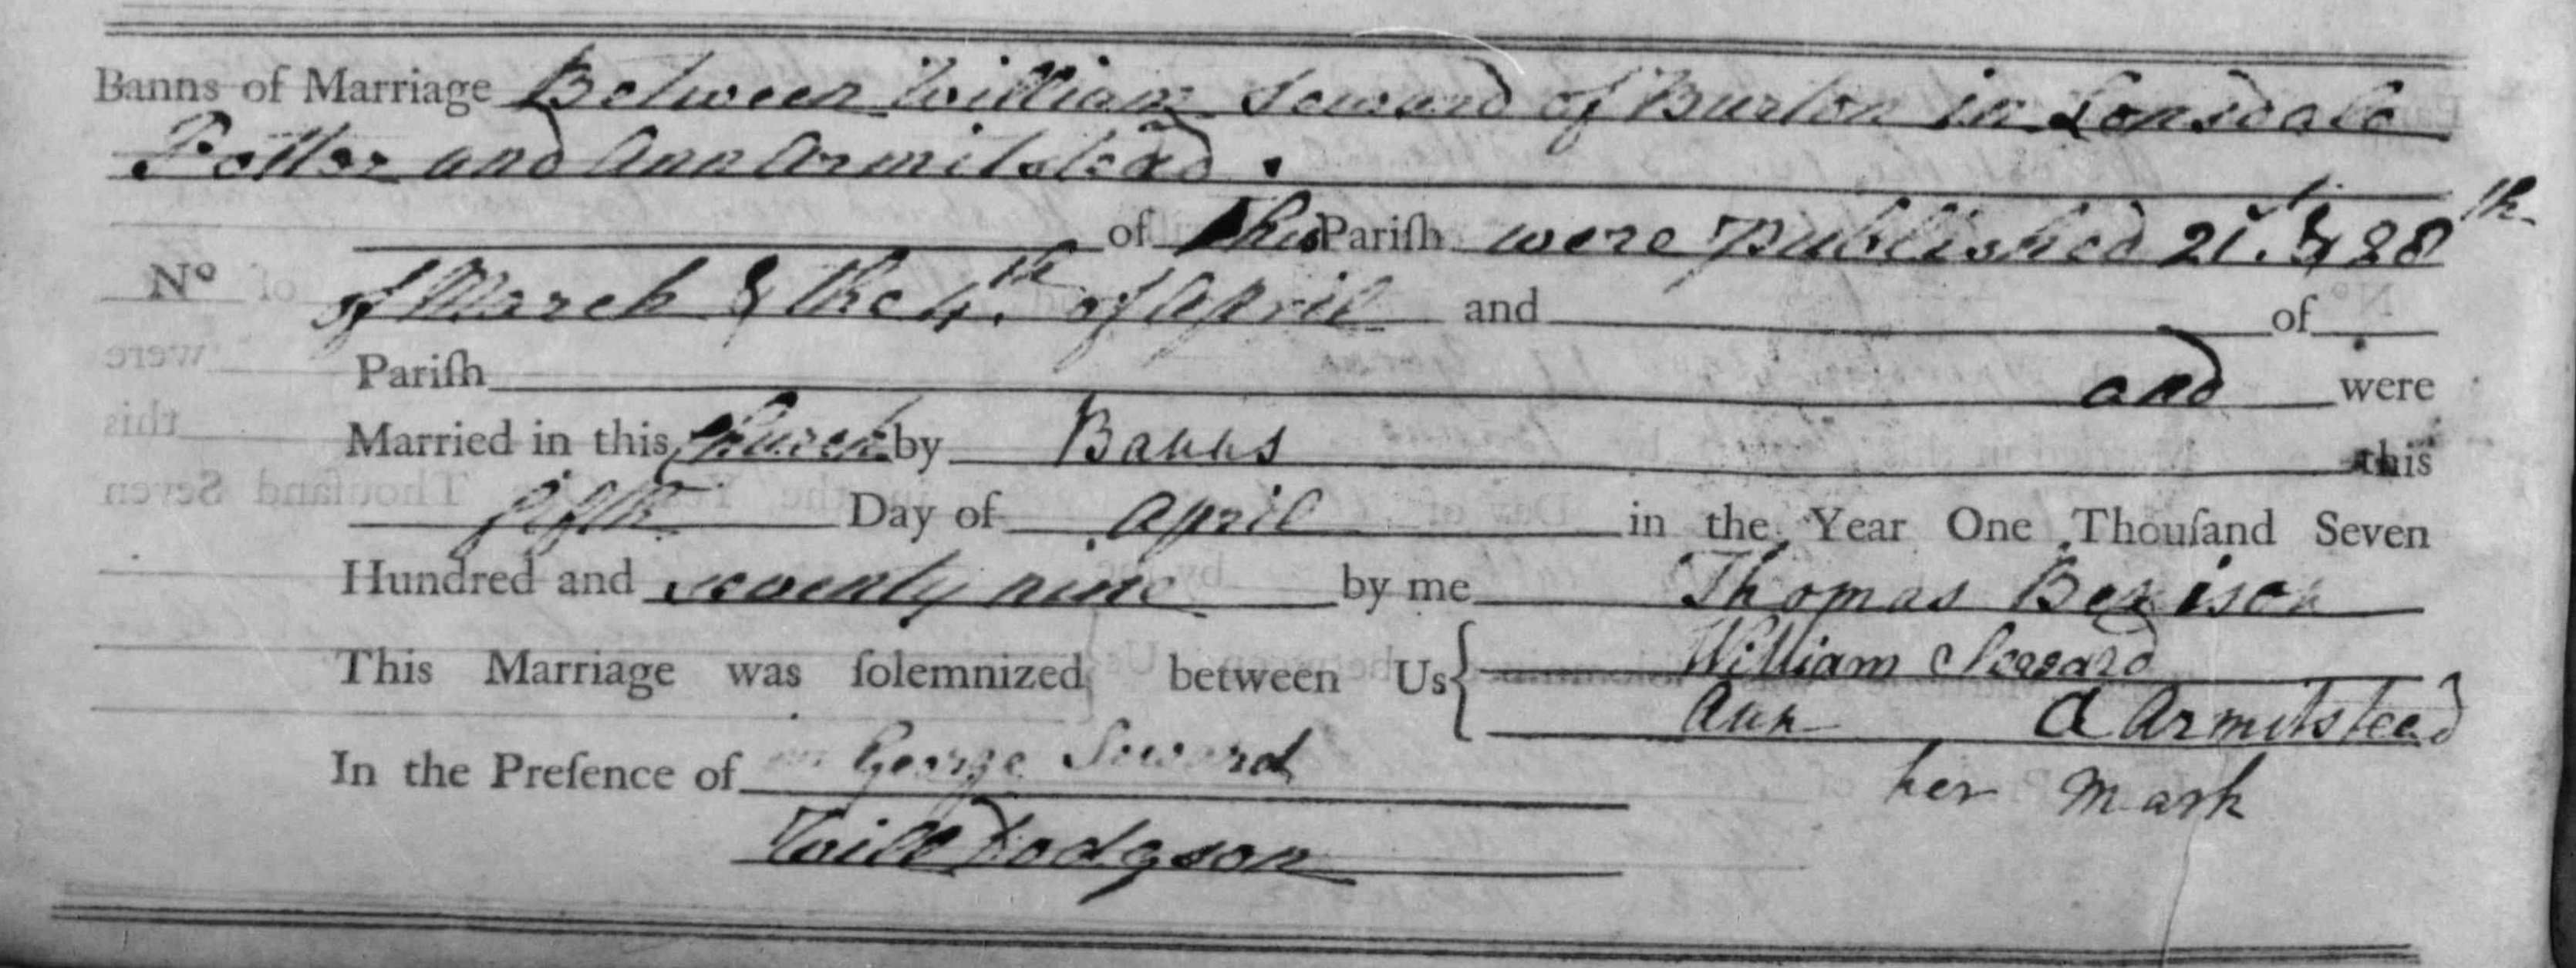 Banns of Marriage Between William Seward of Burton in Lonsdale
Potter and Ann Armitstead.
of this Pariſh were Published 21st. & 28th
Nº of March & the 4th. of April and of
Pariſh and were
Married in this Church by Banns this
fifth Day of April in the Year One Thouſand Seven
Hundred and seventy nine by me Thomas Benison
This Marriage was ſolemnized between Us { William Seward
Ann A Armitstead
In the Preſence of George Seward her mark
Will Dodgson